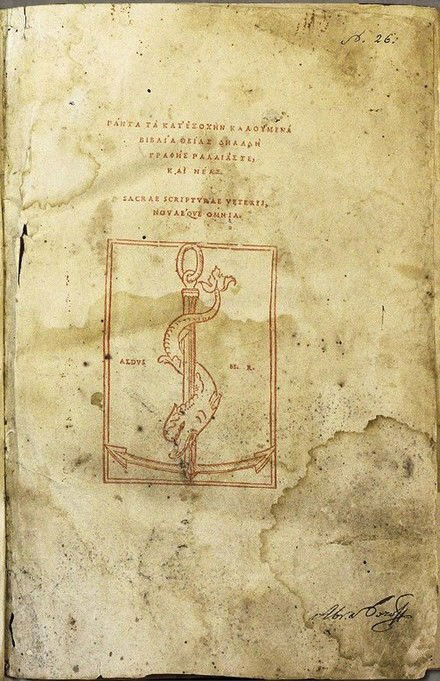 N. 26.
ΠΑΝΤΑ ΤΑ ΚΑΤ' ΕΞΟΧΗΝ ΚΑΛΟΥΜΕΝΑ
ΒΙΒΛΙΑ ΘΕΙΑΣ ΔΗΛΑΔΗ
ΓΡΑΦΗΣ ΠΑΛΑΙΑΣ ΤΕ,
ΚΑΙ ΝΕΑΣ.
SACRAE SCRIPTVRAE VETERIS,
NOVAEQVE OMNIA.
ALDVS M. R.